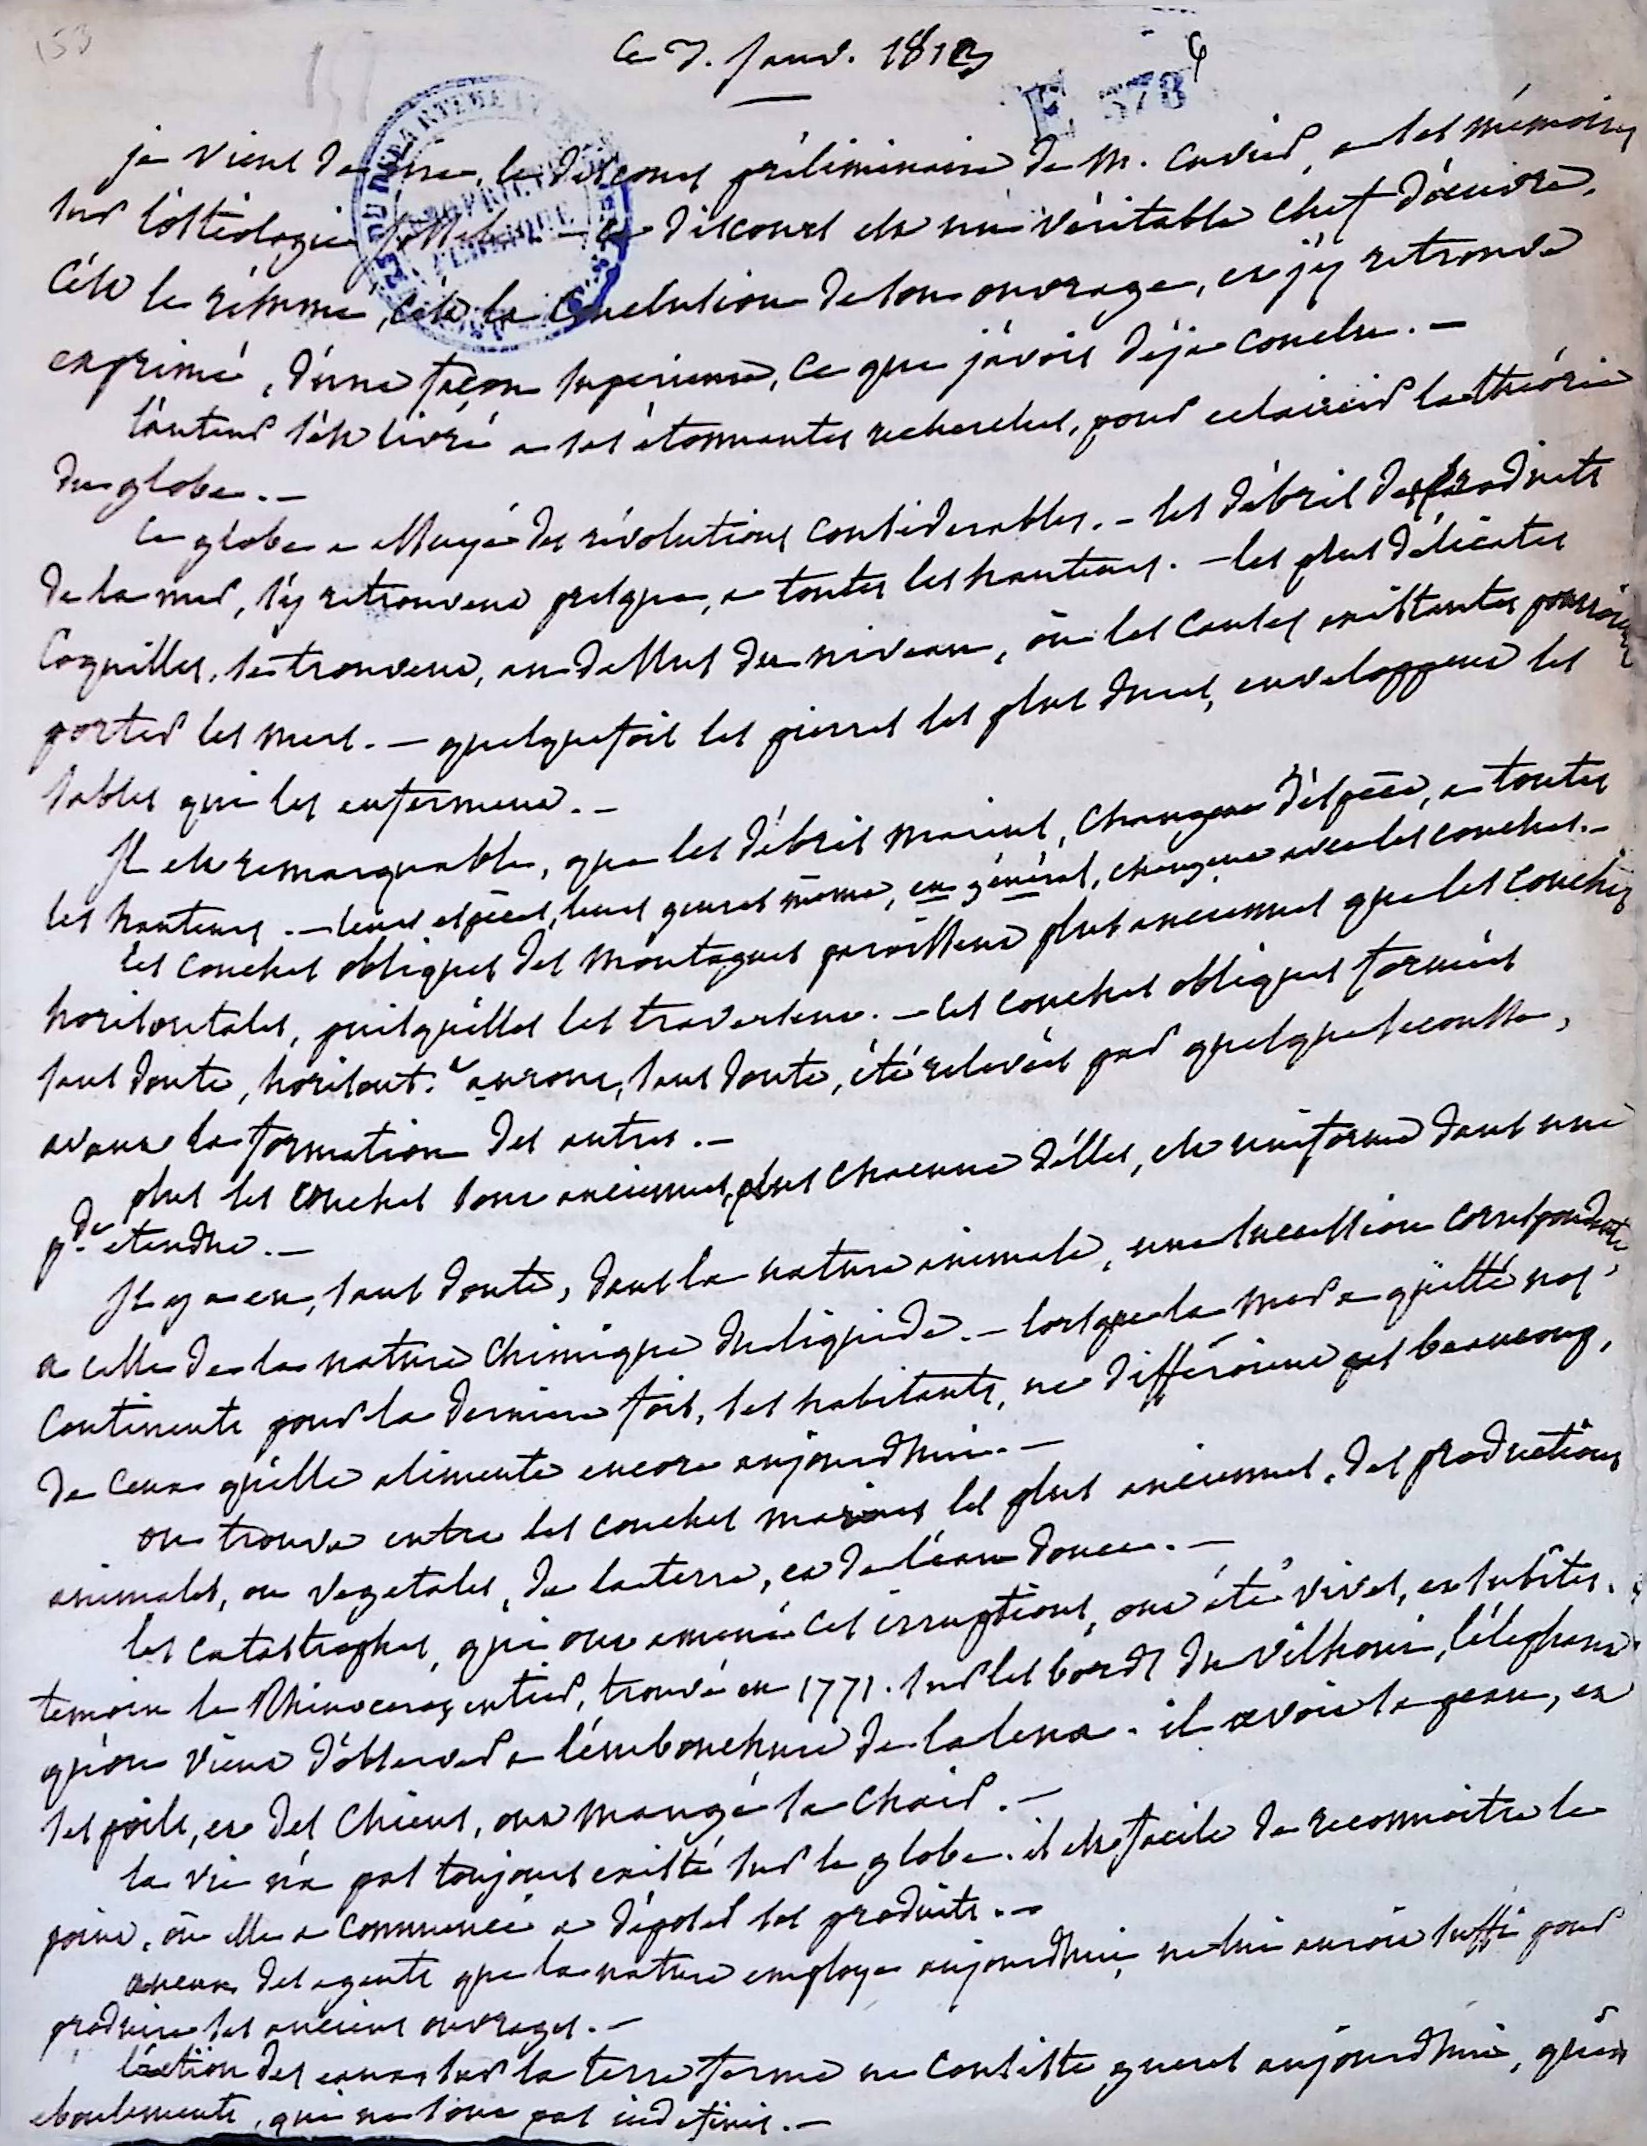 153
Ce 7. Janv. 1813
E 378
je viens de lire, le discours préliminaire de M. Cuvier, a ses mémoires
sur l'ostéologie fossile. — ce discours est un véritable chef d'œuvre.
C'est le résumé, c'est la conclusion de son ouvrage, et j'y retrouve
exprimé, d'une façon superieure, ce que j'avois déja conclu. —
l'auteur s'est livré a ses étonnantes recherches, pour eclaircir la théorie
du globe. —
Ce globe a essuyé des révolutions considerables. — les débris des produits
de la mer, s'y retrouvent presque, a toutes les hauteurs. — les plus délicates
Coquilles, se trouvent, au dessus du niveau, où les causes existantes pourroient
porter les mers. — quelquefois les pierres les plus dures, enveloppent les
sables qui les enferment. —
Il est remarquable, que les débris marins, changent d'espèce, a toutes
les hauteurs. — leurs espèces, leurs genres même, en général, changent avec les couches. —
les couches obliques des montagnes paroissent plus anciennes que les couches
horisontales, puisqu'elles les traversent. — les couches obliques formées
sans doute, horisont.t auront, sans doute, été relevées par quelque secousse,
avant la formation des autres. —
plus les couches sont anciennes, plus chacune d'elles, est uniforme dans une
g.de etendue. —
Il y a eu, sans doute, dans la nature animale, une succession correspondante
a celle de la nature chimique du liquide. — lorsque la mer a quitté nos
Continents pour la derniere fois, ses habitants, ne différoient pas beaucoup,
de ceux qu'elle alimente encore aujourdhui. —
on trouve entre les couches marines les plus anciennes, des productions
animales, ou vegetales, de la terre, et de l'eau douce. —
les catastrophes, qui ont amené ces irruptions, ont été vives, et subites.
temoin le Rhinoceros entier, trouvé en 1771. sur les bords du Vilhoui, l'éléphant
qu'on vient d'observer a l'embouchure de la lena. il avoit sa peau, et
ses poils, et des chiens, ont mangé sa chair. —
la vie n'a pas toujours existé sur le globe. il est facile de reconnoitre le
point, où elle a commencé a déposer ses produits. —
aucun des agents que la nature employe aujourdhui, ne lui auroit suffi pour
produire ses anciens ouvrages. —
l'action des eaux sur la terre ferme ne consiste gueres aujourdhui, qu'en
eboulements, qui ne sont pas indefinis. —